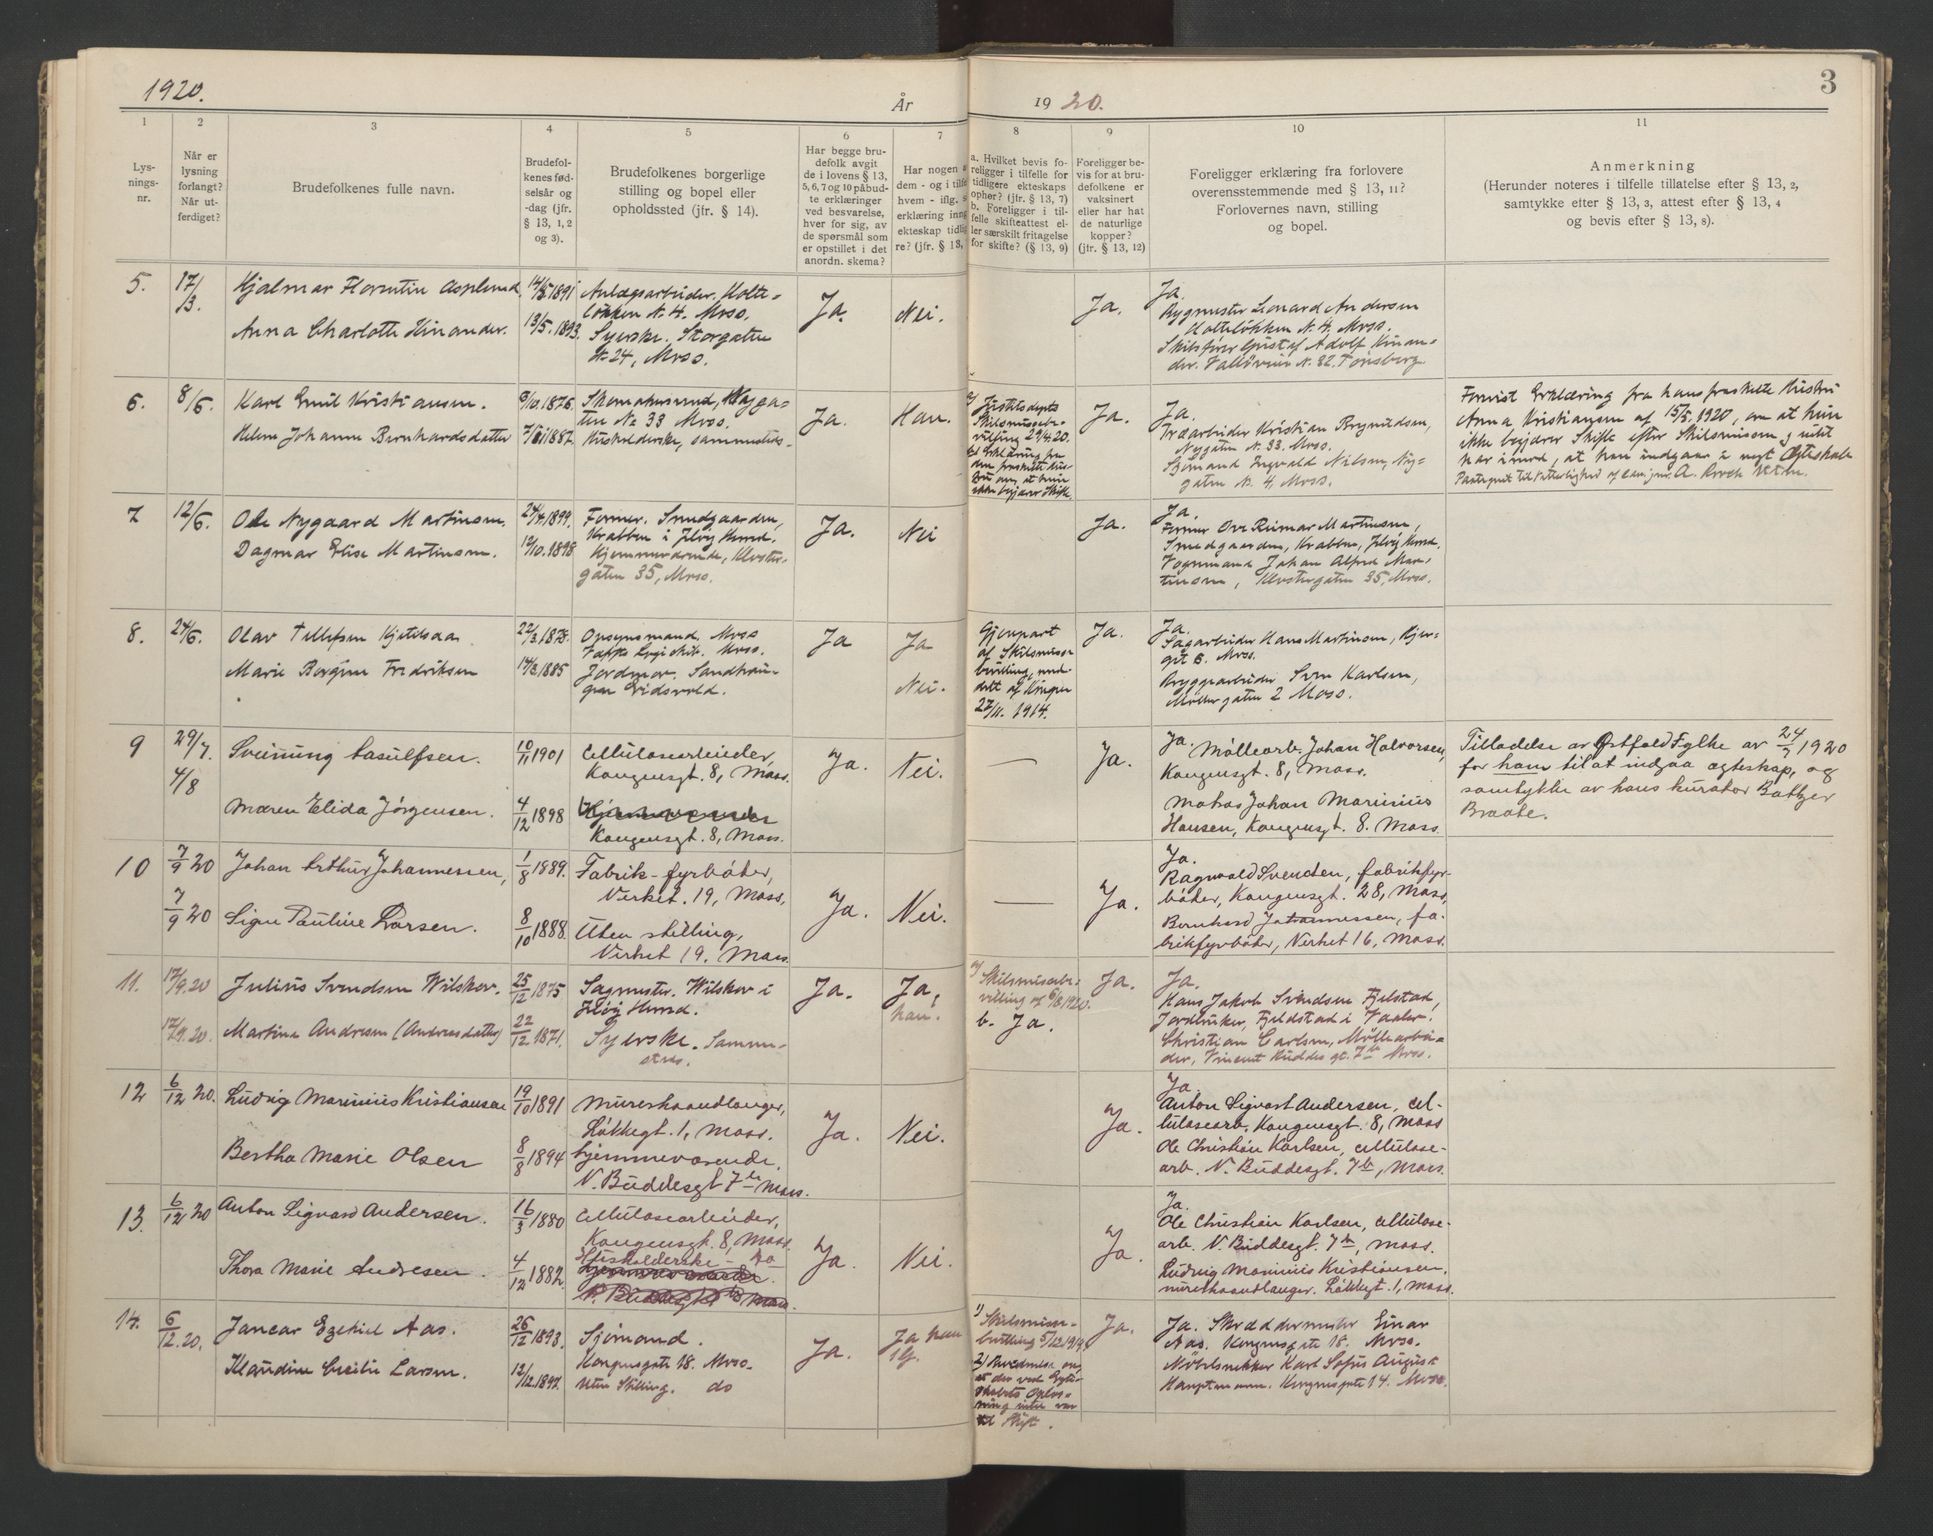 1920.
År
19 20.
3
1
2
3
4
5
6
7
8
9
10
11
Lys-
nings-
nr.
Når er
lysning
forlangt?
Når ut-
ferdiget?
Brudefolkenes fulle navn.
Brudefol-
kenes fød-
selsår og
-dag (jfr.
§ 13, 1, 2
og 3).
Brudefolkenes borgerlige
stilling og bopel eller
opholdssted (jfr. § 14).
Har begge bru-
defolk avgit
de i lovens § 13,
5, 6, 7 og 10 påbud-
te erklæringer
ved besvarelse,
hver for sig, av
de spørsmål som
er opstillet i det
anordn. skema?
Har nogen a
dem - og i tilfe
hvem - iflg. s
erklæring inng
ekteskap tidlig
re? (jfr. § 13,
a. Hvilket bevis fo-
religger i tilfelle for
tidligere ekteskaps
ophør? (jfr. § 13, 7)
b. Foreligger i til-
felle skifteattest el-
ler særskilt fritagelse
for skifte? (§ 13, 9)
Foreligger be-
vis for at bru-
defolkene er
vaksinert
eller har hat
de naturlige
kopper?
(jfr. § 13, 12)
Foreligger erklæring fra forlovere
overensstemmende med § 13, 11?
Forlovernes navn, stilling
og bopel.
Anmerkning
(Herunder noteres i tilfelle tillatelse efter § 13, 2,
samtykke efter § 13, 3, attest efter § 13, 4
og bevis efter § 13, 8).
5.
17/
/3.
Hjalmar Florentin Asplund
Anna Charlotte Kinander.
14/5 1891
13/5. 1893.
Anlægsarbeider. Holte-
løkken N. 4. Moss.
Syerske. Storgaten
N. 24, Moss.
Ja.
Nei.
Ja.
Ja.
Rygmester Leonard Andersen
Holteløkken N. 4. Moss.
Skibsfører Gustaf Adolf Kinan-
der. Valløveien N. 32. Tønsberg
6.
8/6.
Karl Emil Kristiansen.
Helene Johanne Bernhardsdatter
10. 1876.
1887.
Skomakersvend, Nyga-
ten No 33 Moss.
Husholderske, sammesteds.
Ja.
Han.
a) Justitsdepts
Skilsmissebe-
villing 29/4. 20.
b) Erklæring fra
den fraskilte hus-
tru om, at hun
ikke begjærer Skifte.
Ja.
Ja.
Træarbeider Kristian Brynildsen,
Nygaten N. 33. Moss.
Sjømand Ingvald Nilsen, Ny-
gaten N. 4, Moss.
Forevist Erklæring fra hans fraskilte Hustru
Anna Kristiansen af 15/5. 1920, om at hun
ikke begjærer Skifte efter Skilsmissen og intet
har imod, at han indgaar i nyt Ægteskab
7
12/6.
Ole Nygaard Martinsen.
Dagmar Elise Martinsen.
24/4. 1899.
12/10. 1898
Former. Smedgaarden,
Krabben i Jeløy Herred.
Hjemmeværende, Kloster-
gaten 35, Moss.
Ja.
Nei
Ja.
Ja.
Former Ove Reimar Martinsen,
Smedgaarden, Krabben, Jeløy Herred.
Vognmand Johan Alfred Mar-
tinsen, Klostergaten 35, Moss.
8.
24/6.
Olav Tellefsen Kjetilsaa
Marie Bergine Fredriksen
22/3. 1878.
14/3. 1885
Opsynsmand. Moss
Tappe Logi skib. Moss.
Jordmor. Sandhau-
gen Eidsvold.
Ja
Ja
Nei.
Gjenpart
af Skilsmisse
bevilling, med-
delt af Kongen
27/11. 1914.
Ja.
Ja.
Sagarbeider Hans Martinsen, Hjer-
gt. 8. Moss.
Bryggearbeider Sven Karlsen,
Møllergaten 2 Moss.
9
29/7.
4/8
Sveinung Aasulfsen.
Maren Elida Jørgensen.
10/11 1901
4/12 1898
Cellulosearbeider,
Kongensgt. 8, Moss.
Hjemmeværende
Kongensgt. 8, Moss.
Ja.
Nei.
—
Ja.
Ja.
Møllearb. Johan Halvorsen,
Kongensgt. 8, Moss.
Matros Johan Marinius
Hansen, Kongensgt. 8. Moss.
Tilladelse av Østfold Fylke av 24/7 1920
for ham til at indgaa ægteskap, og
samtykke av hans kurator Baltzer
Braate.
10
7/9 20
7/9 20
Johan Arthur Johannessen,
Signe Pauline Larsen.
1/8 1889.
8/10 1888.
Fabrik-fyrbøter,
Verket. 19, Moss,
Uten stilling,
Verket 19. Moss.
Ja.
Nei.
—
Ja.
Ja.
Ragnvald Svendsen, fabrikfyr-
bøter, Kongensgt. 28, Moss,
Bernhard Johannessen, fa-
brikfyrbøter, Verket 16, Moss.
11.
17/9. 20
17/9. 20.
Julius Svendsen Wilskov.
Martine Andresen (Andreasdatter)
25/12 1875
22/12 1871.
Sagmester. Wilskov i
Jeløy Herred.
Syerske. Samme-
steds.
Ja.
Ja,
han.
a) Skilsmissebe-
villing af 6/8 1920.
b. Ja.
Ja.
Ja.
Hans Jakob Svendsen Fjelstad,
Jordbruker, Fjeldstad i Vaaler.
Christian Carlsen, Møllearbei-
der, Vincent Buddes gt. 7b Moss.
12
6/12 20.
Ludvig Marinius Kristiansen
Bertha Marie Olsen
19/10 1891
8/8 1894
Murerhaandlanger,
Løkkegt. 1, Moss.
Hjemmeværende,
V. Buddesgt 7b Moss.
Ja.
Nei.
Ja.
Ja.
Anton Sigvart Andersen, cel-
lulosearb., Kongensgt. 8, Moss
Ole Christian Karlsen, cellulose-
arb. V. Buddesgt. 7b, Moss.
13.
6/12 20
Anton Sigvard Andersen.
Thora Marie Andresen.
16/3 1880
4/12 1882.
Cellulosearbeider,
Kongensgt. 8, Moss.
Husholderske - do
Hjemmeværende.
V. Buddesgt 7b Moss.
Ja.
Nei.
Ja.
Ja.
Ole Christian Karlsen, cellulose-
arb. V. Buddesgt. 7b, Moss.
Ludvig Marinius Kristiansen,
murerhaandlanger. Løkkegt. 1, Moss.
14.
6/12. 20.
Jancar Ezekiel Aas.
Klaudine Cecilie Larsen.
26/12 1893.
12/12. 1897.
Sjømand.
Kongensgate 18. Moss.
Uten Stilling. do
Ja.
Ja han
1) Skilsmisse-
bevilling 5/12 1919.
2) Bevidnelse om
at der ved Egte-
skabets Opløs-
ning intet var
at skifte.
Ja.
Ja. Skræddermester Einar
Aas. Kongensgate 18. Moss.
Møbelsnekker Karl Sofus August
Hauptmann. Kongensgate 14. Moss.